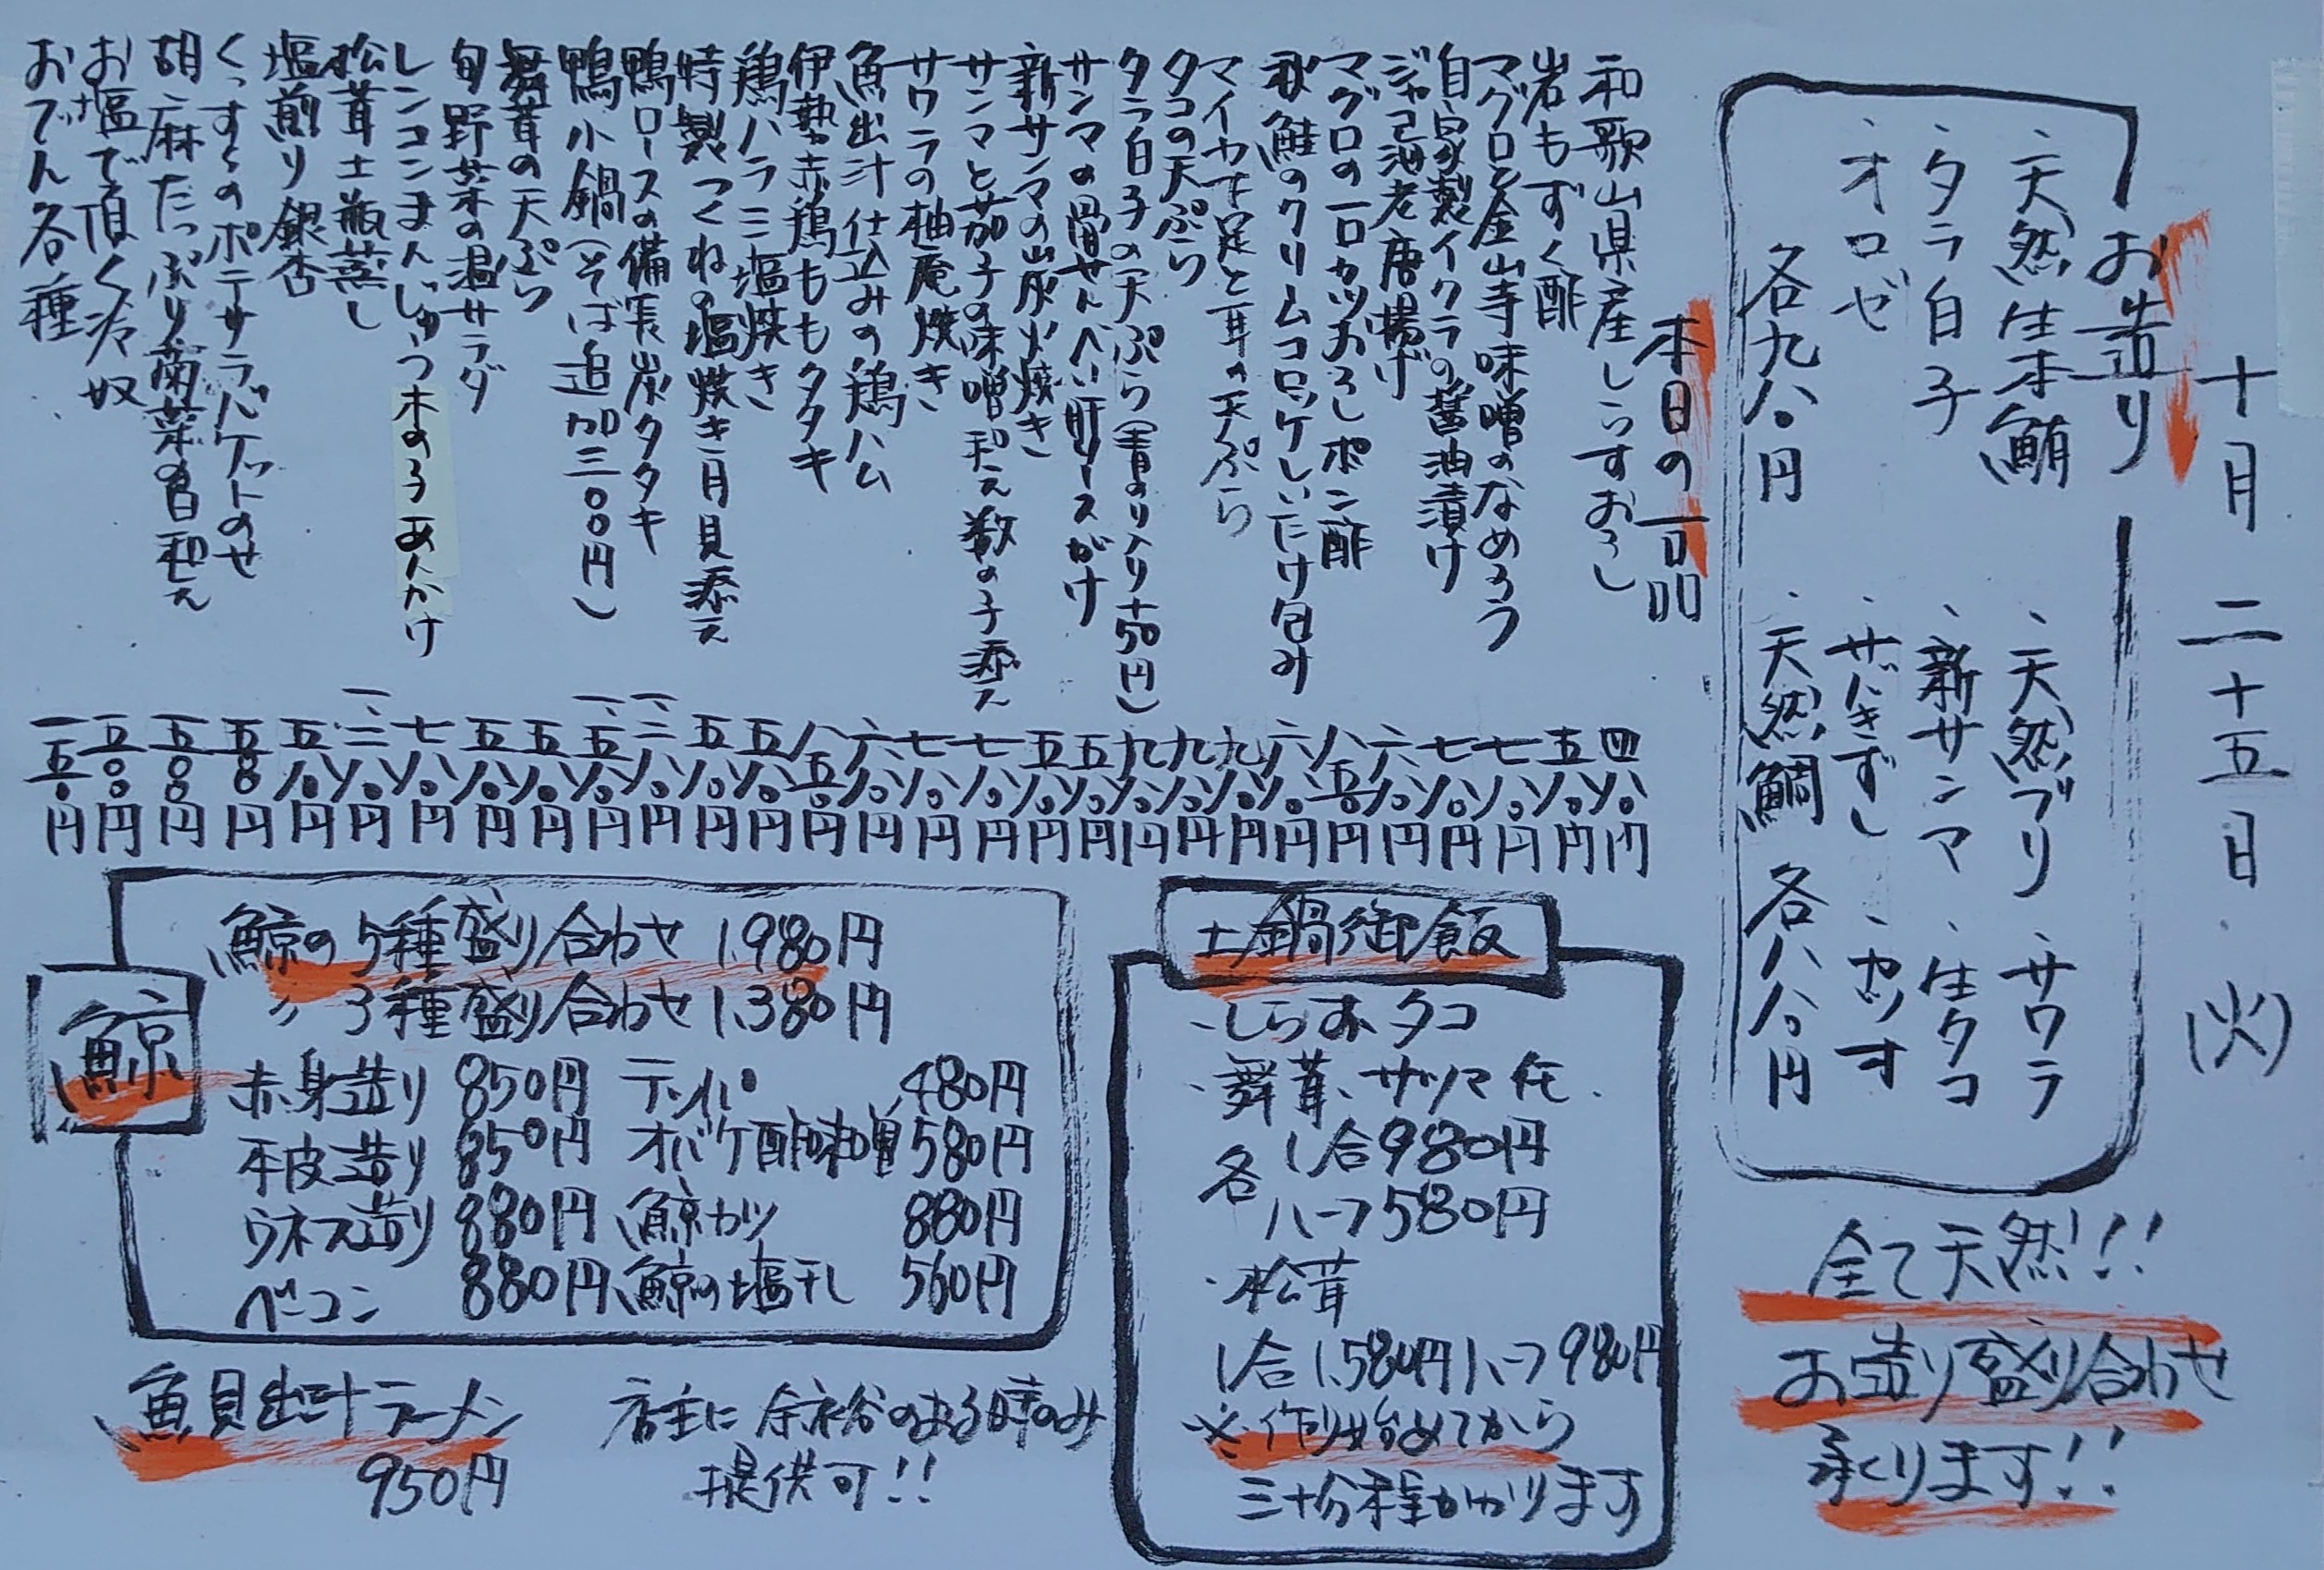 十月二十五日(火)
お造り
・天然生本鮪
・タラ白子
・オロゼ
各九八〇円
・天然ブリ・サワラ
・新サンマ・生タコ
・サバきずし・カツオ
・天然鯛 各八八〇円
全て天然!!
お造り盛り合わせ
承ります!!
本日の一品
和歌山県産しらすおろし 四八〇円
岩もずく酢 五八〇円
マグロと金山寺味噌のなめろう 七八〇円
自家製イクラの醤油漬け 七八〇円
ジャコ海老唐揚げ 六八〇円
マグロの一口カツおろしポン酢 八五〇円
秋鮭のクリームコロッケしいたけ包み 六八〇円
マイカ下足と耳の天ぷら 九八〇円
タコの天ぷら 九八〇円
タラ白子の天ぷら(青のり入り+50円) 九八〇円
サンマの骨せんべい肝ソースがけ 五八〇円
新サンマの炭火焼き 五八〇円
サンマと茄子の味噌和え数の子添え 七八〇円
サワラの柚庵焼き 七八〇円
魚出汁仕込みの鶏ハム 六八〇円
伊勢赤鶏ももタタキ 八五〇円
鶏ハラミ塩焼き 五八〇円
特製つくねの塩焼き月見添え 五八〇円
鴨ロースの備長炭タタキ 一、二八〇円
鴨小鍋(そば追加三〇〇円) 一、五八〇円
舞茸の天ぷら 五八〇円
旬野菜の温サラダ 五八〇円
レンコンまんじゅう木の子あんかけ 七八〇円
松茸土瓶蒸し 一、二八〇円
塩煎り銀杏 五八〇円
くっすくのポテサラバケットのせ 五〇〇円
胡麻たっぷり菊菜の白和え 五〇〇円
お塩で頂く冷奴 五〇〇円
おでん各種 一五〇円
土鍋御飯
・しらす、タコ
・舞茸、サツマ芋
各 1合980円
ハーフ580円
・松茸
1合1,580円ハーフ980円
※作り始めてから
三十分程かかります
鯨
鯨の5種盛り合わせ 1,980円
〃 3種盛り合わせ 1,380円
赤身造り 850円 テッパ 480円
本皮造り 850円 オバケ酢味噌 580円
ウネス造り 880円 鯨カツ 880円
ベーコン 880円 鯨の塩干し 560円
魚貝出汁ラーメン
950円
店主に余裕のある時のみ
提供可!!